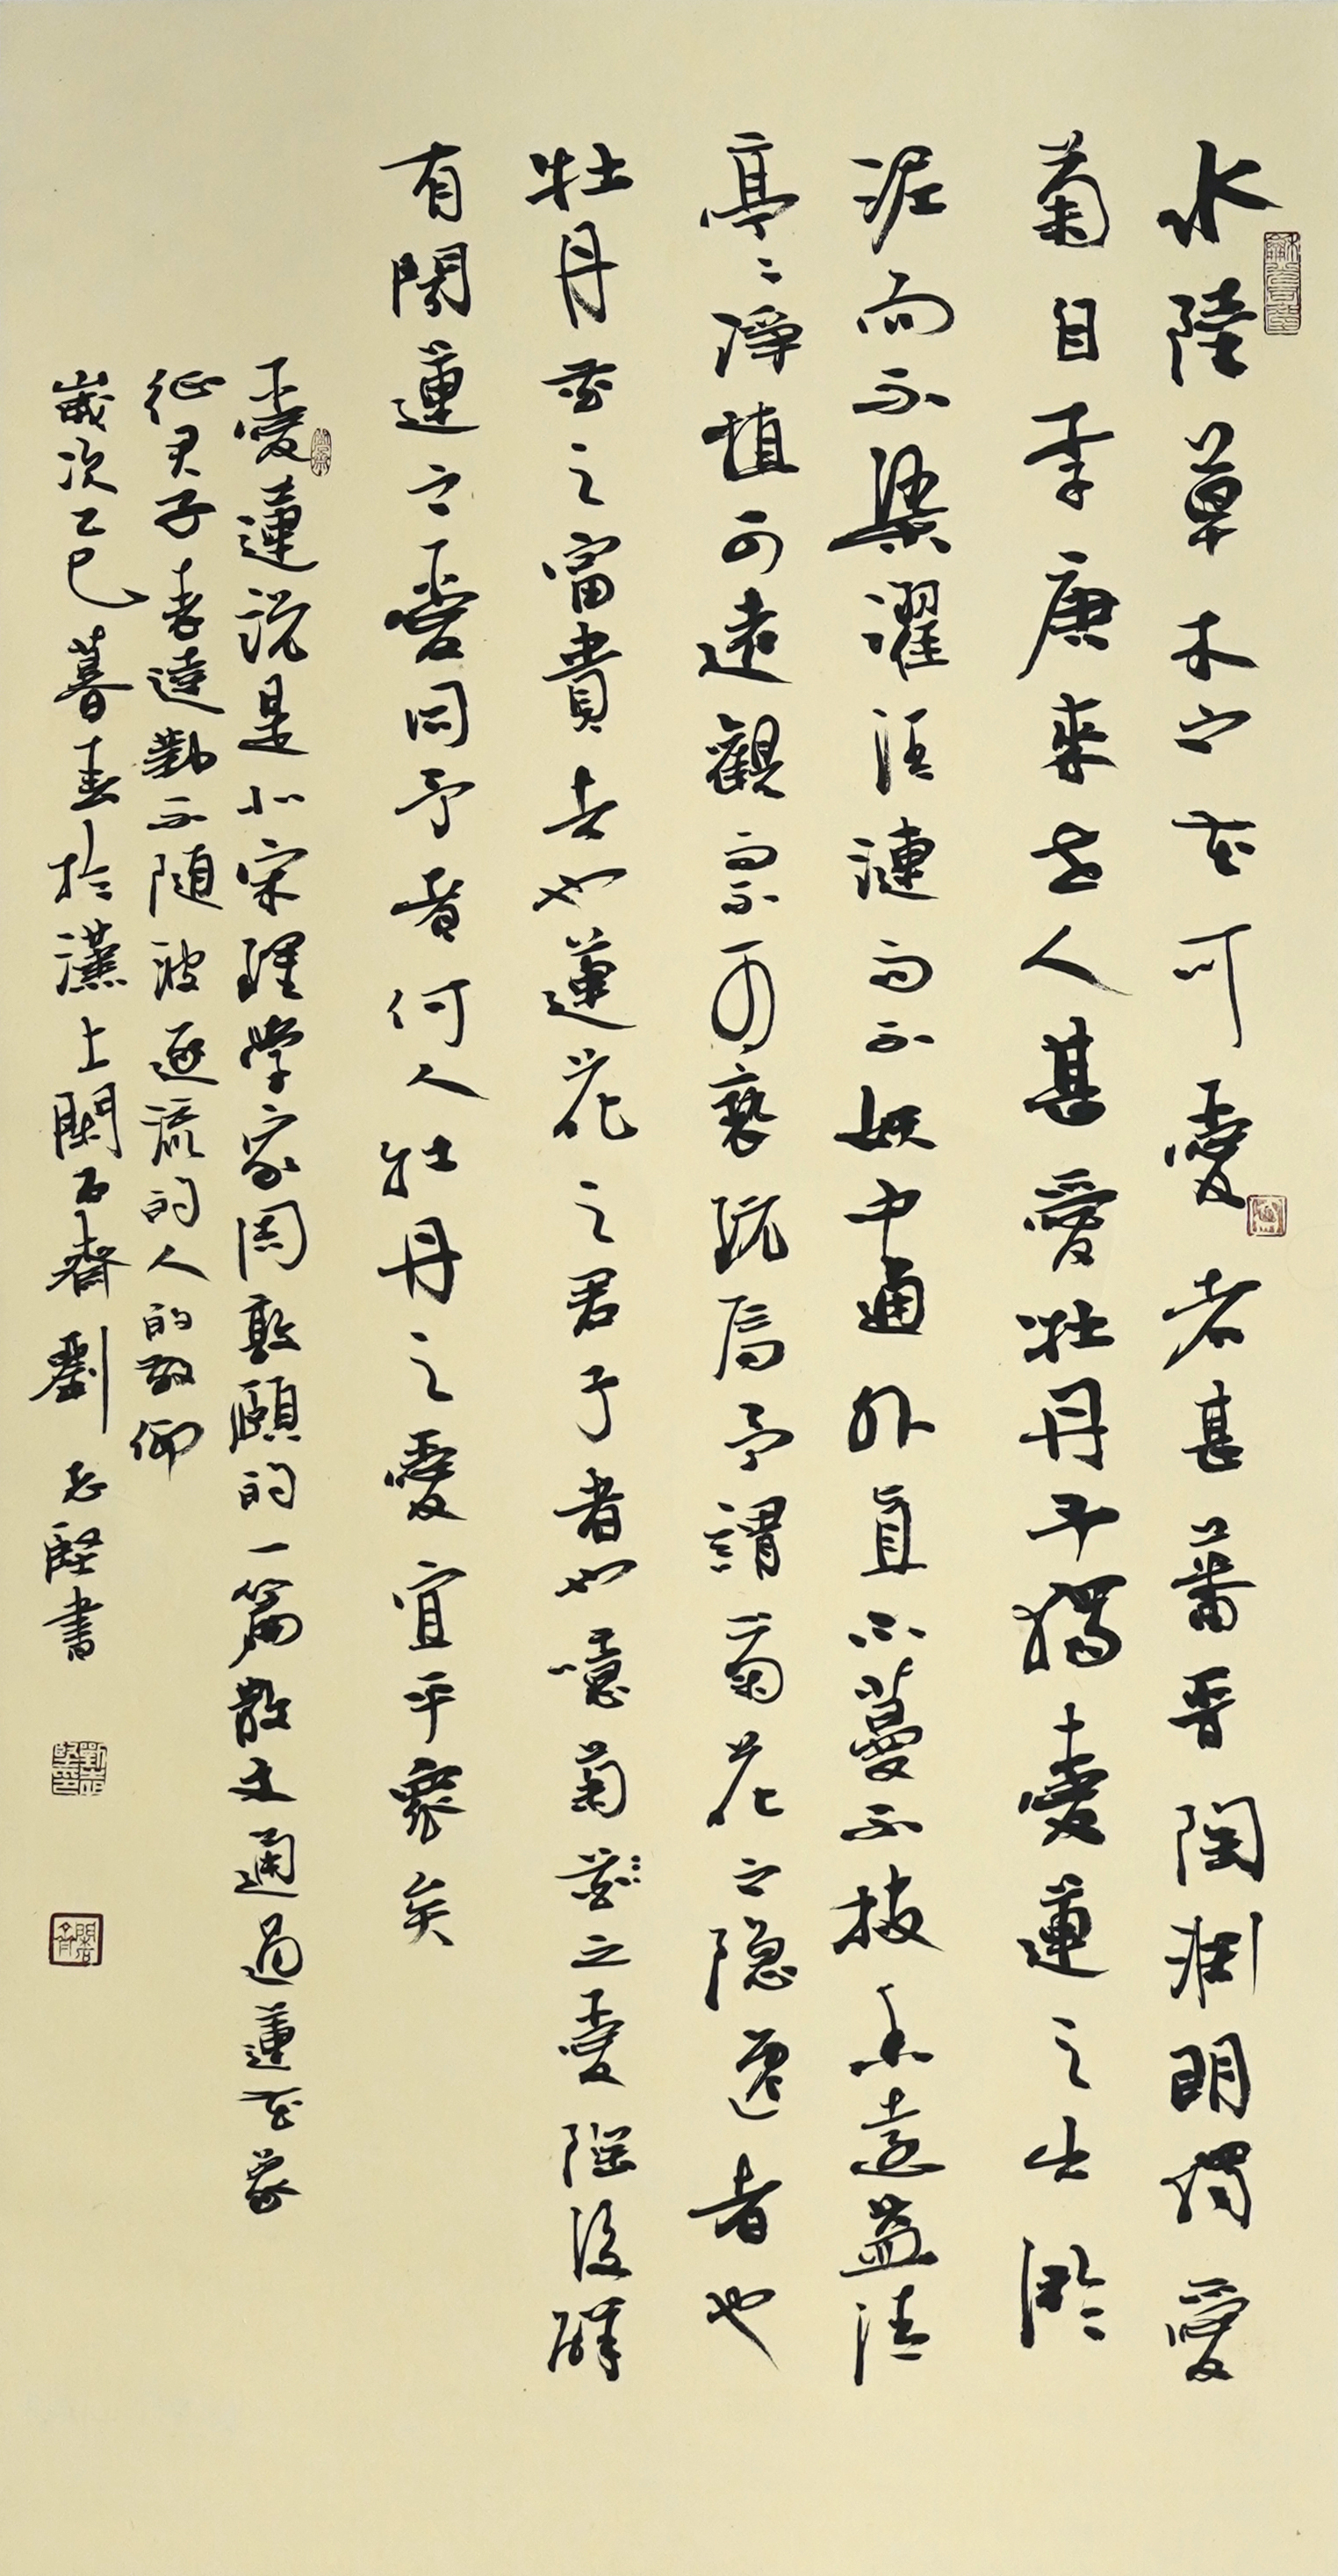 水陸草木之花可愛者甚蕃晉陶渊明獨愛
菊自李唐来世人甚愛牡丹予獨愛蓮之出淤
泥而不染濯清漣而不妖中通外直不蔓不枝香遠益清
亭亭淨植可遠觀而不可褻玩焉予謂菊花之隐逸者也
牡丹花之富貴者也蓮花之君子者也噫菊花之愛陶後鮮
有聞蓮之愛同予者何人牡丹之愛宜乎衆矣
愛蓮说是北宋理学家周敦頤的一篇散文通过蓮花象
征君子表達對不随波逐流的人的敬仰
嵗次乙巳暮春於漢上閑石齋劉志堅書